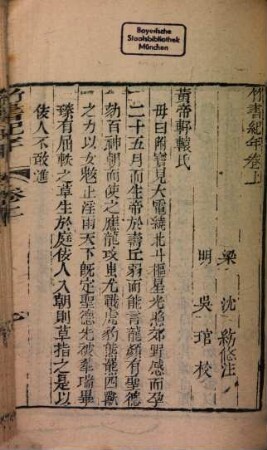 Bayerische
Staatsbibliothek
München
竹書紀年卷上
梁 沈 約 修注
明 吳 琯 校
黃帝軒轅氏
母曰附寶見大電繞北斗樞星光照郊野感而孕
二十五月而生帝於壽丘弱而能言龍顏有聖德
劾百神朝而使之應龍攻蚩尤戰虎豹熊羆四獸
之力以女魃止淫雨天下既定聖德光被羣瑞畢
臻有屈軼之草生於庭佞人入朝則草指之是以
佞人不敢進